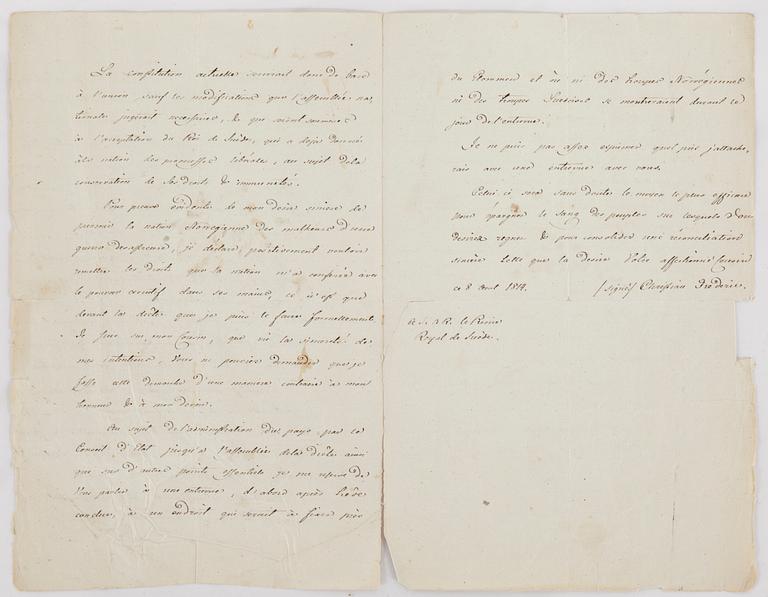 La constitution actuelle servirait donc de base
à l'union sauf les modifications que l'assemblée na,
tionale jugerait necessaires, & que seront soumises
à l'acceptation du Roi de Suède, qui a deja donné
à la nation des promesses liberales, au sujet de la
conservation de ses droits & immunités.
Pour preuve évidente de mon desir sincere de
preserver la nation Norvegienne des malheurs d'une
guerre desastreuse, je declare positivement vouloir
remettre les droits que la nation m'a conferés avec
le pouvoir executif dans ses mains, ce n'est que
devant la diète que je puis le faire formellement
Je jure sur mon honneur, que vû la sincerité de
mes intentions, Vous ne pouvez demander que je
fasse cette demarche d'une maniere contraire à mon
honneur & à mon devoir.
Au sujet de l'administration du pays par le
Conseil d'Etat jusqu'à l'assemblée de la diète ainsi
que sur d'autres points essentiels je me reserve de
Vous parler à une entrevue, d'abord après
conclue, à un endroit qui serait à fixer près
du Glommen et où ni des troupes Norvégiennes
ni des troupes Suedoises se montreraient durant le
jour de l'entrevue.
Je ne puis pas assez exprimer quel prix j'attache,
rais avec une entrevue avec vous.
Celui ci sera sans doute le moyen le plus efficace
pour épargner le sang des peuples sur lesquels Vous
desirez regner & pour consolider une réconciliation
sincère telle que la desire Votre affectionné Cousin
ce 8 Aout 1814. (signé) Christian Frederic.
à S. A. R. le Prince
Royal de Suède.